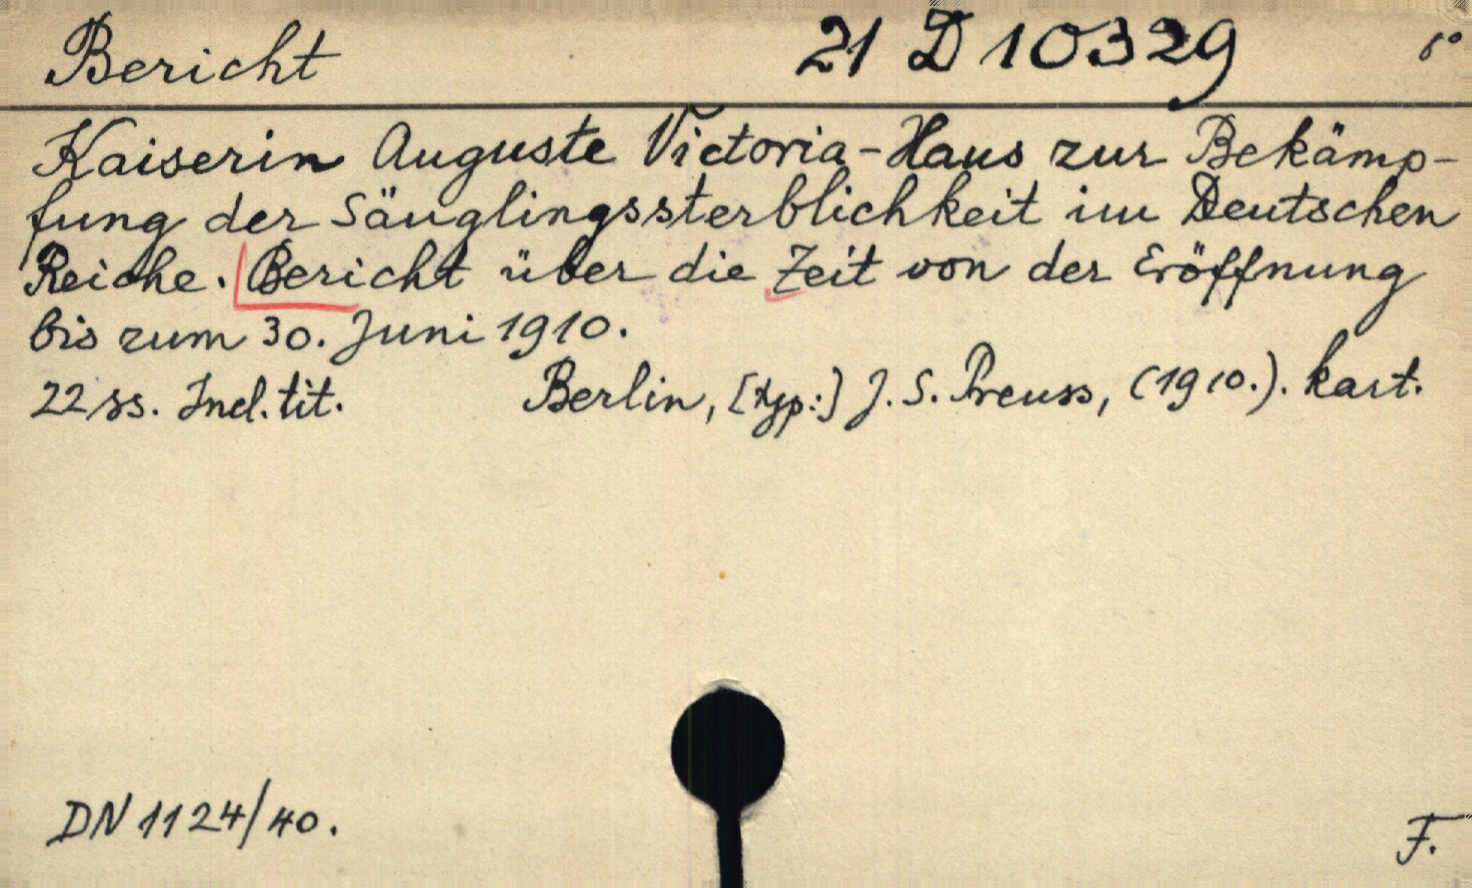 Bericht 21 D 10329 8°
Kaiserin Auguste Victoria-Haus zur Bekämp-
fung der Säuglingssterblichkeit im Deutschen
Reiche. Bericht über die Zeit von der Eröffnung
bis zum 30. Juni 1910.
22 ss. Incl. tit. Berlin, [typ:] J. S. Preuss, (1910.). kart.
DN 1124/40. F.